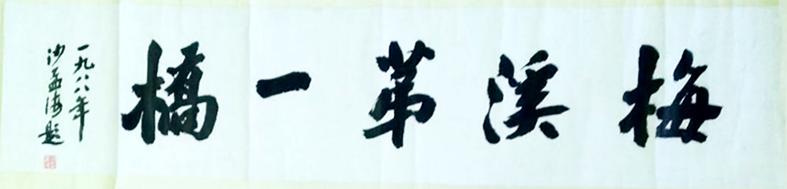 梅溪苐一橋
一九八八年
沙孟海題